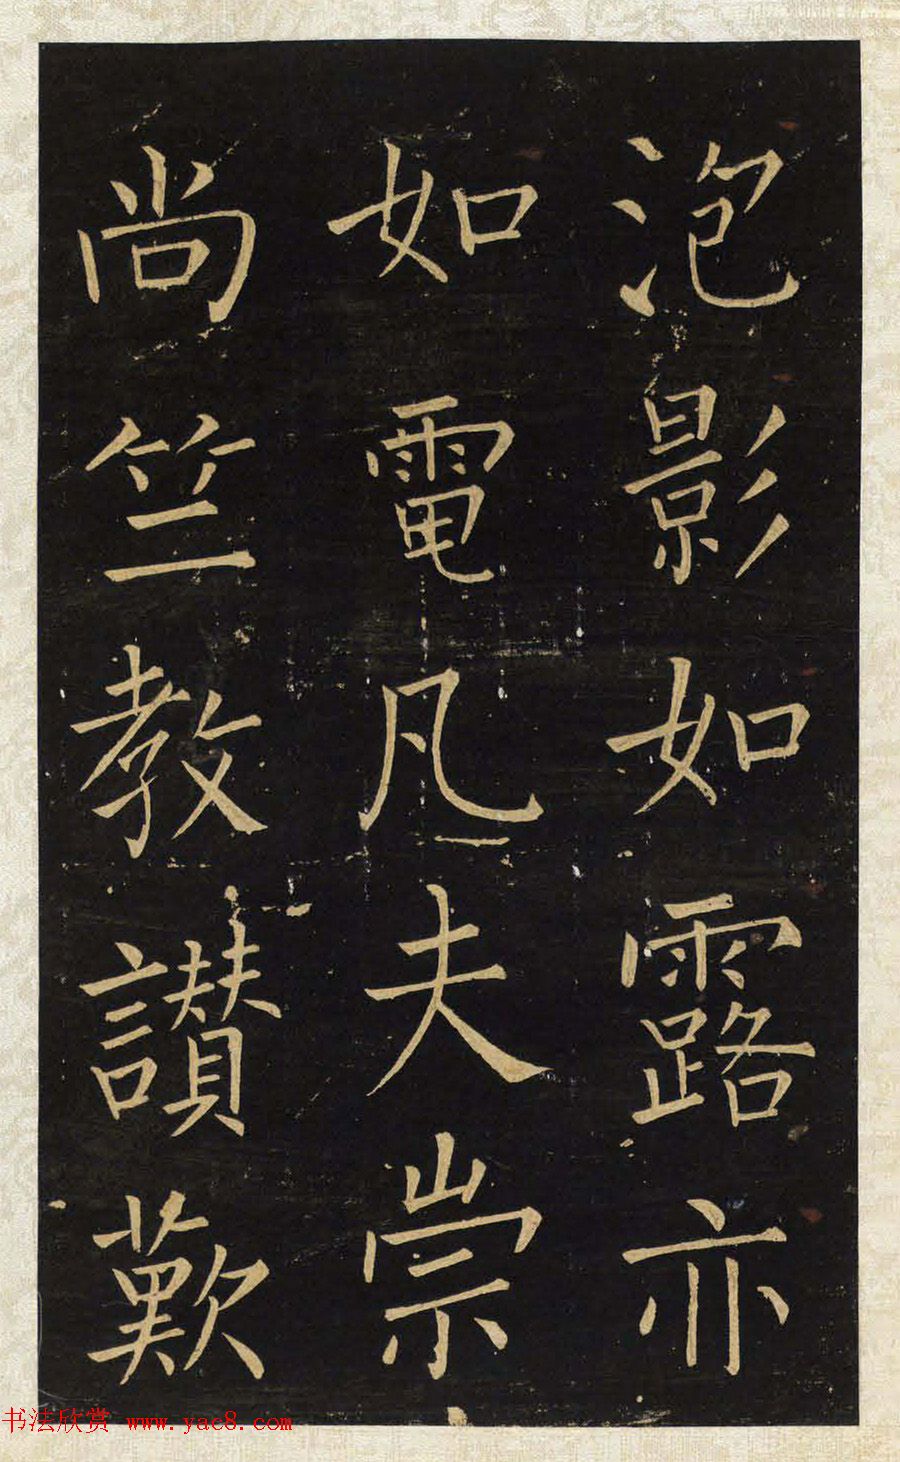 泡影如露亦
如電凡夫崇
尚竺教讃歎
书法欣赏 www.yac8.com